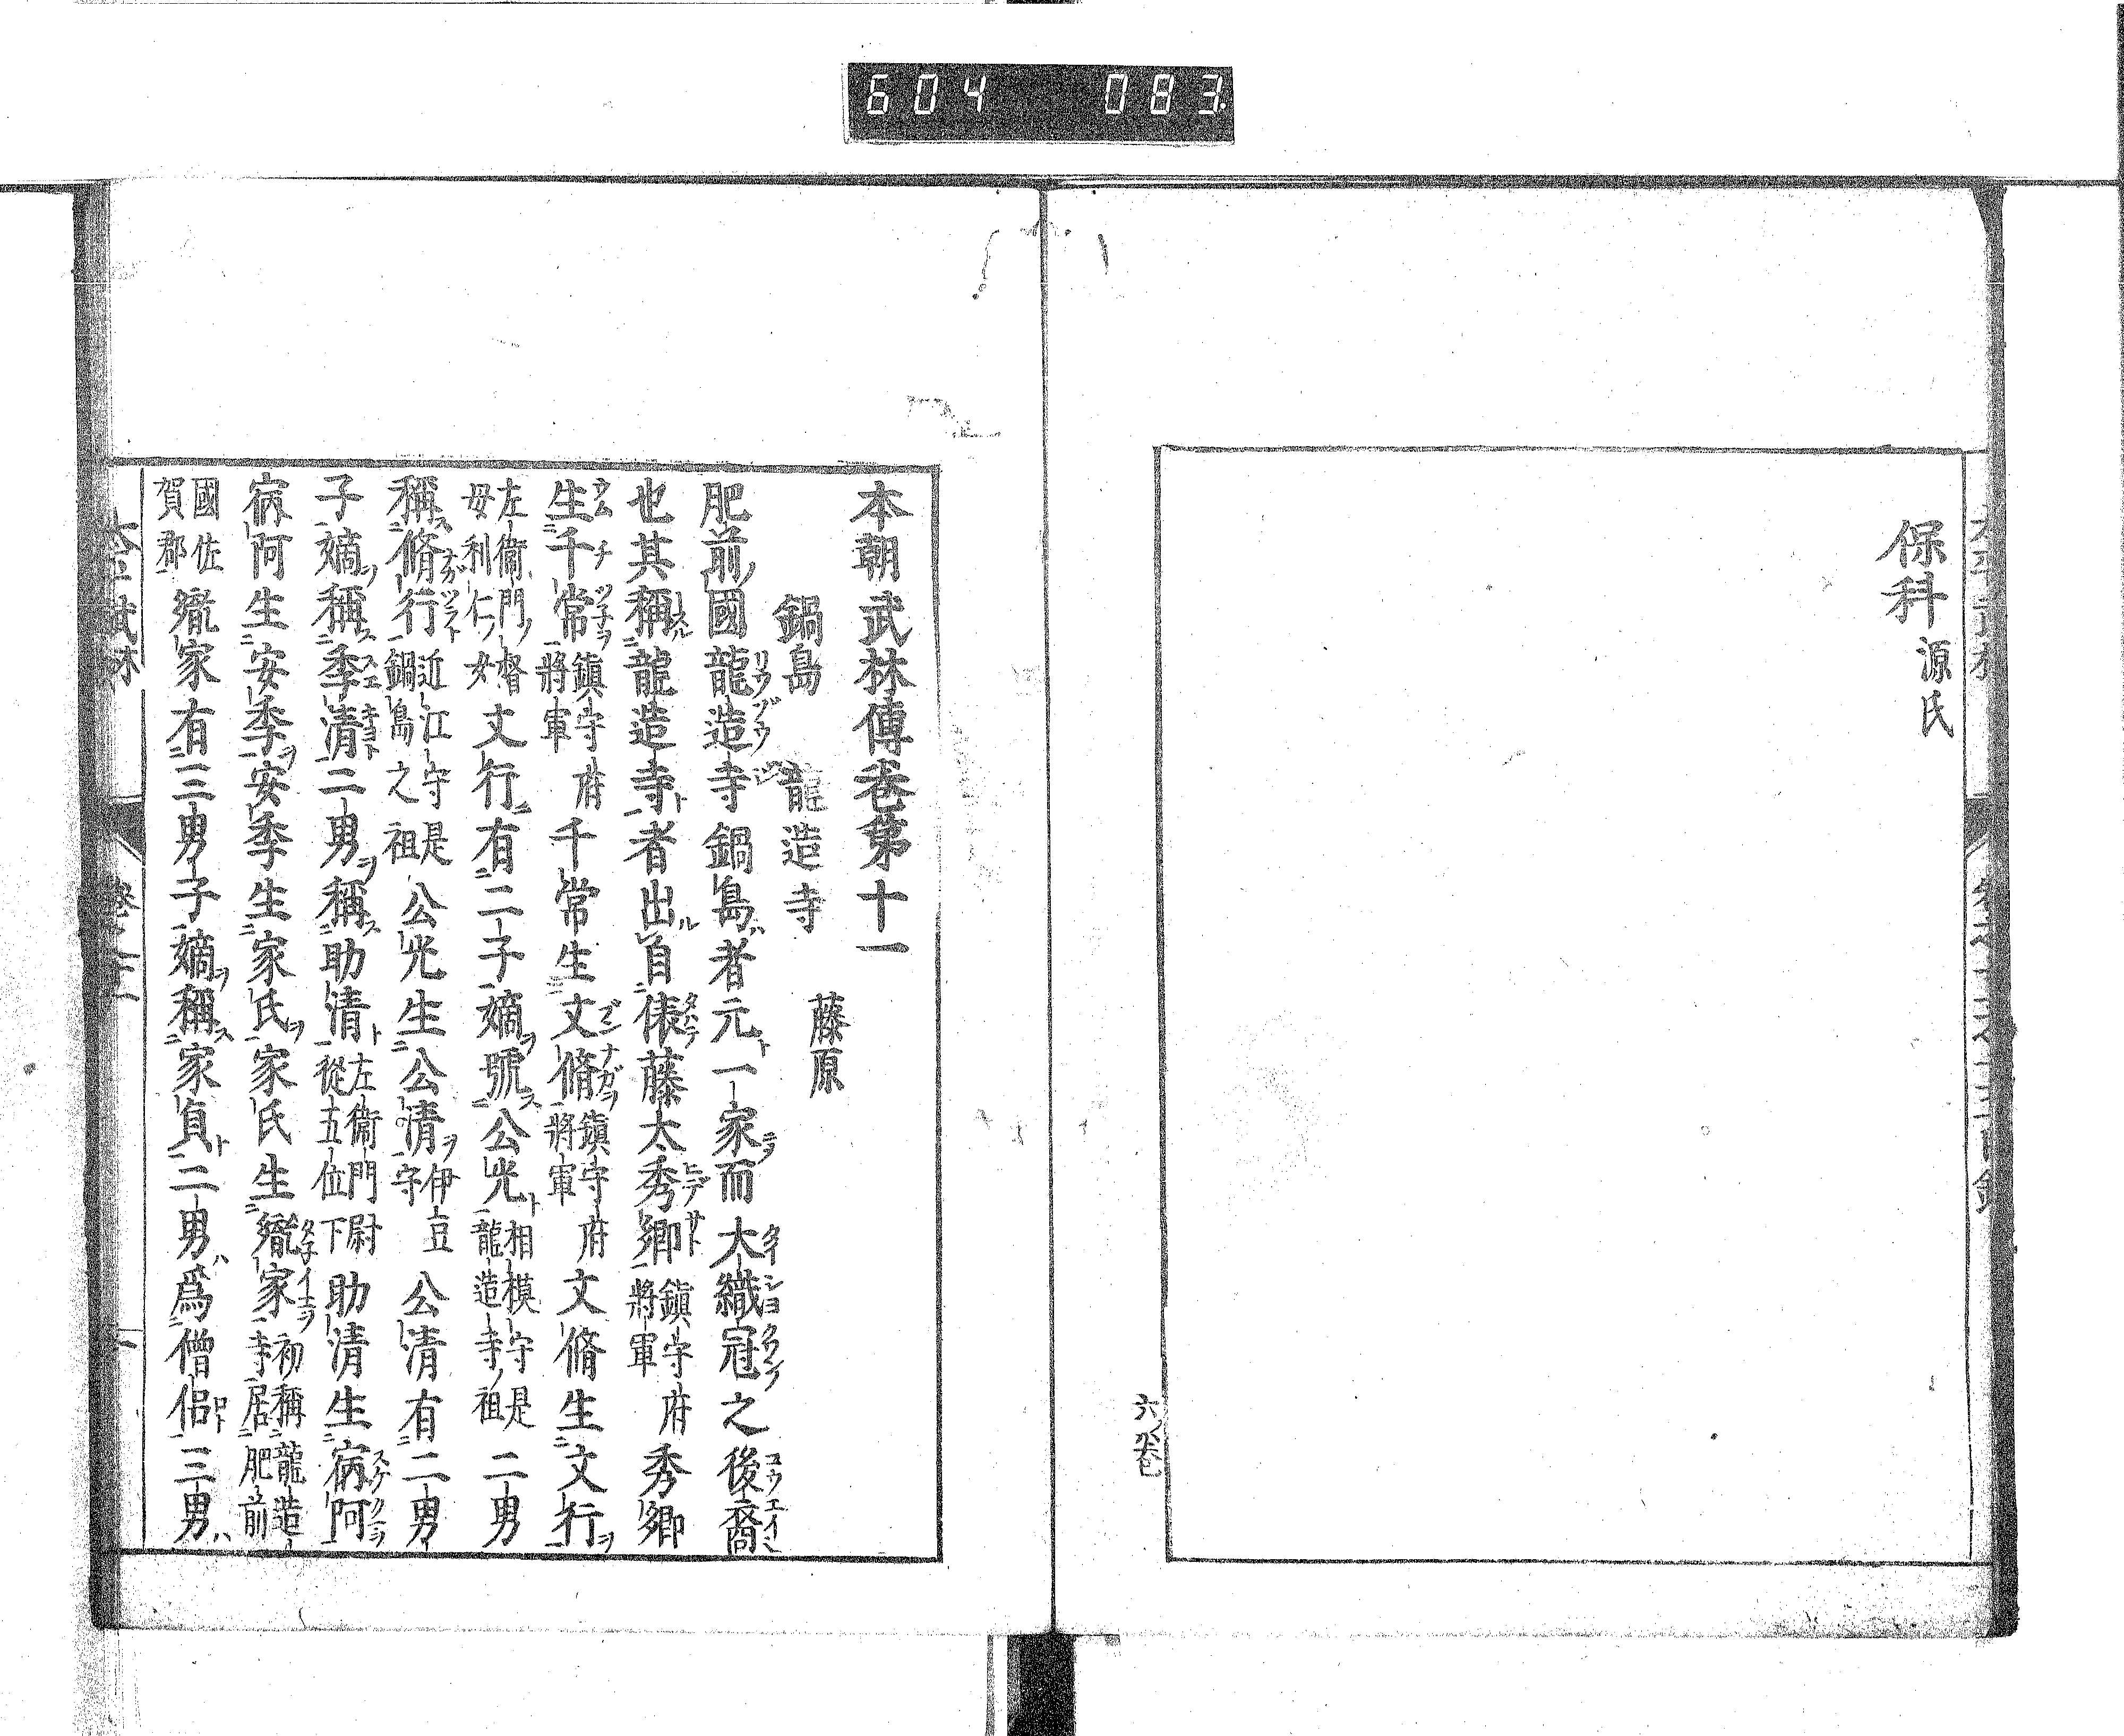 604 083
保科 源氏
本朝武林傳卷第十一
鍋島 龍造寺 藤原
肥前國龍造寺鍋島者元一家而大織冠之後裔
也其稱龍造寺者出自俵藤太秀鄉鎮守府將軍秀鄉
生千常鎮守府將軍千常生文脩鎮守府將軍文脩生文行
左衞門督母利仁女文行有二子嫡號公光相模守是龍造寺祖二男
稱脩行近江守是鍋島之祖公光生公清伊豆守公清有二男
子嫡稱季清二男稱助清左衞門尉從五位下助清生病阿
病阿生安季安季生家氏家氏生家初稱龍造寺居肥前
國佐賀郡家有三男子嫡稱家貞二男爲僧侶三男